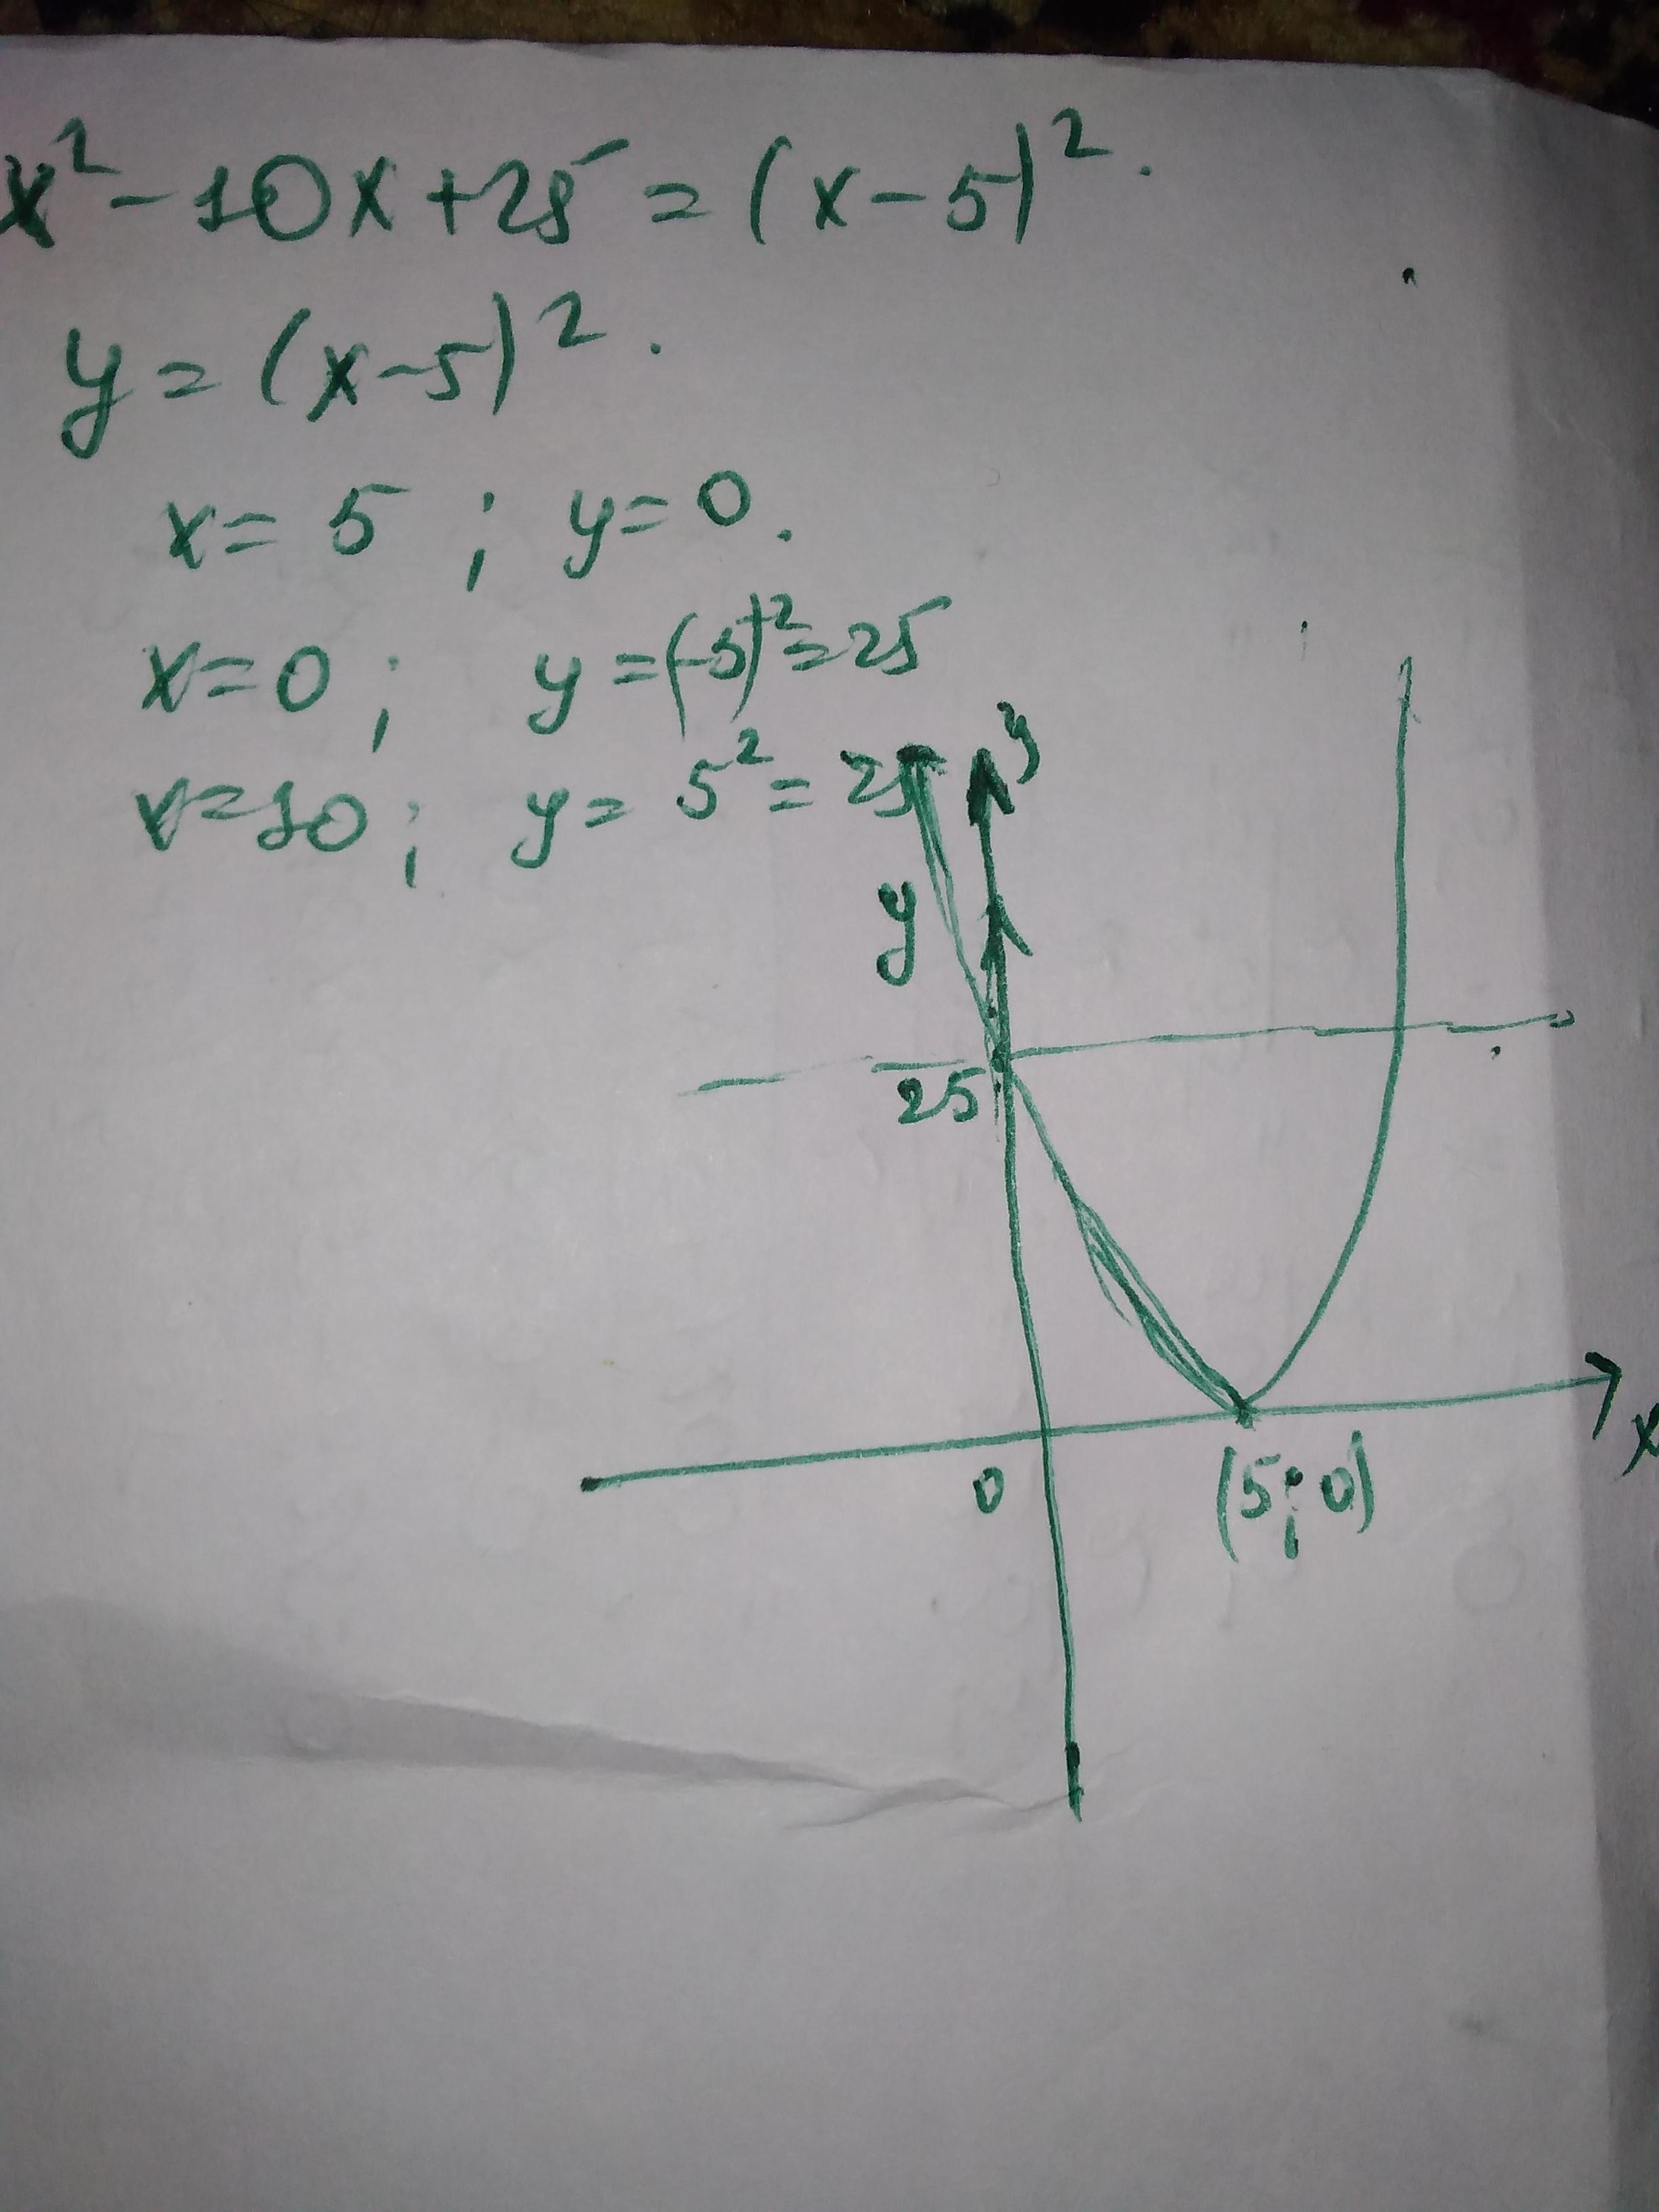 x² - 10x + 25 = (x - 5)².
y = (x - 5)².
x = 5 ; y = 0.
x = 0 ; y = (-5)² = 25
x = 10 ; y = 5² = 25
y
y
25
x
0
(5 ; 0)